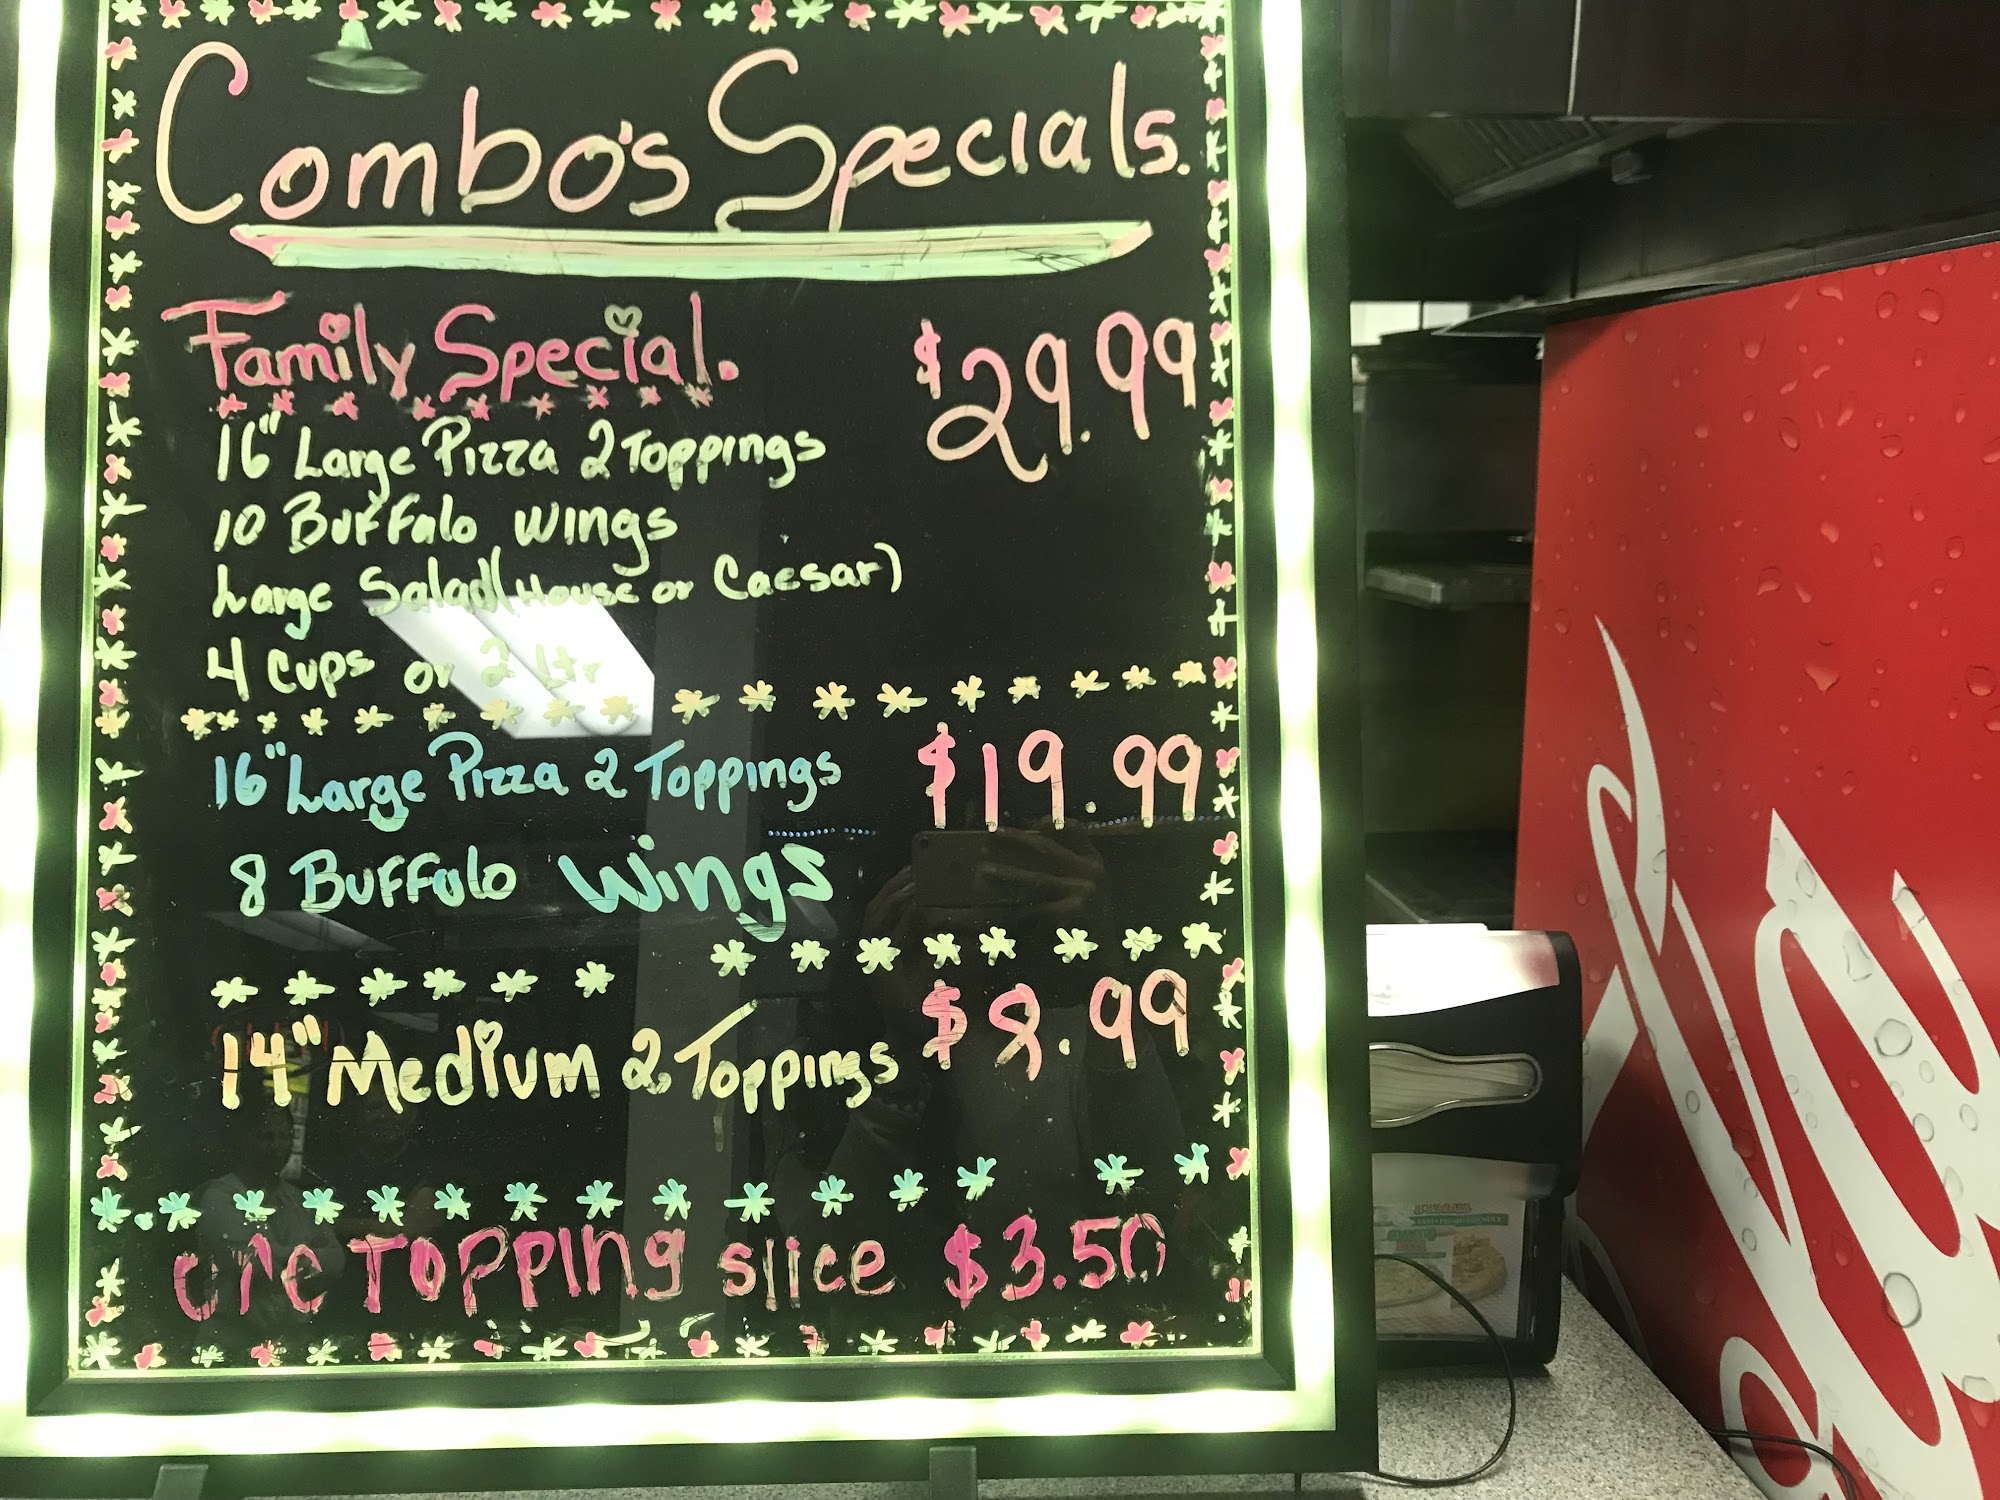 Combo's Specials.
Family Special. $29.99
16" Large Pizza 2 Toppings
10 Buffalo Wings
Large Salad (House or Caesar)
4 Cups or 2 Ltr
16" Large Pizza 2 Toppings $19.99
8 Buffalo Wings
14" Medium 2 Toppings $8.99
one Topping slice $3.50